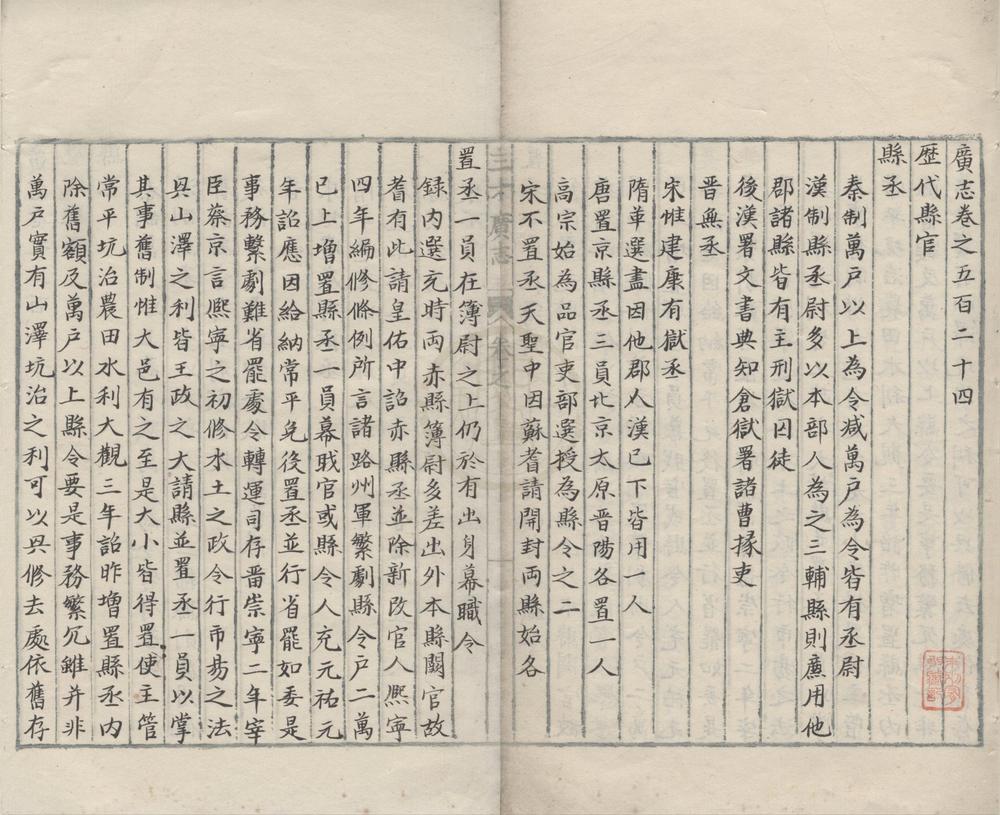 廣志卷之五百二十四
歷代縣官
縣丞
秦制萬戶以上為令减萬戶為令皆有丞尉
漢制縣丞尉多以本部人為之三輔縣則應用他
郡諸縣皆有主刑獄囚徒
後漢署文書典知倉獄署諸曹掾吏
晉無丞
宋惟建康有獄丞
隋革選盡因他郡人漢已下皆用一人
唐置京縣丞三員北京太原晋陽各置一人
高宗始為品官吏部選授為縣令之二
宋不置丞天聖中因蘇耆請開封両縣始各
置丞一員在簿尉之上仍於有出身幕職令
録內選充時両赤縣簿尉多差出外本縣闕官故
耆有此請皇佑中詔赤縣丞並除新改官人熙寧
四年編修條例所言諸路州軍繁劇縣令户二萬
已上增置縣丞一員幕戝官或縣令人充元祐元
年詔應因給納常平免後置丞並行省罷如委是
事務繫劇難省罷處令轉運司存畱崇寧二年宰
臣蔡京言熙寧之初修水土之政令行市易之法
㒷山澤之利皆王政之大請縣並置丞一員以掌
其事舊制惟大邑有之至是大小皆得置使主管
常平坑冶農田水利大觀三年詔昨增置縣丞內
除舊額及萬户以上縣令要是事務繁冗雖并非
萬户實有山澤坑治之利可以㒷修去處依舊存